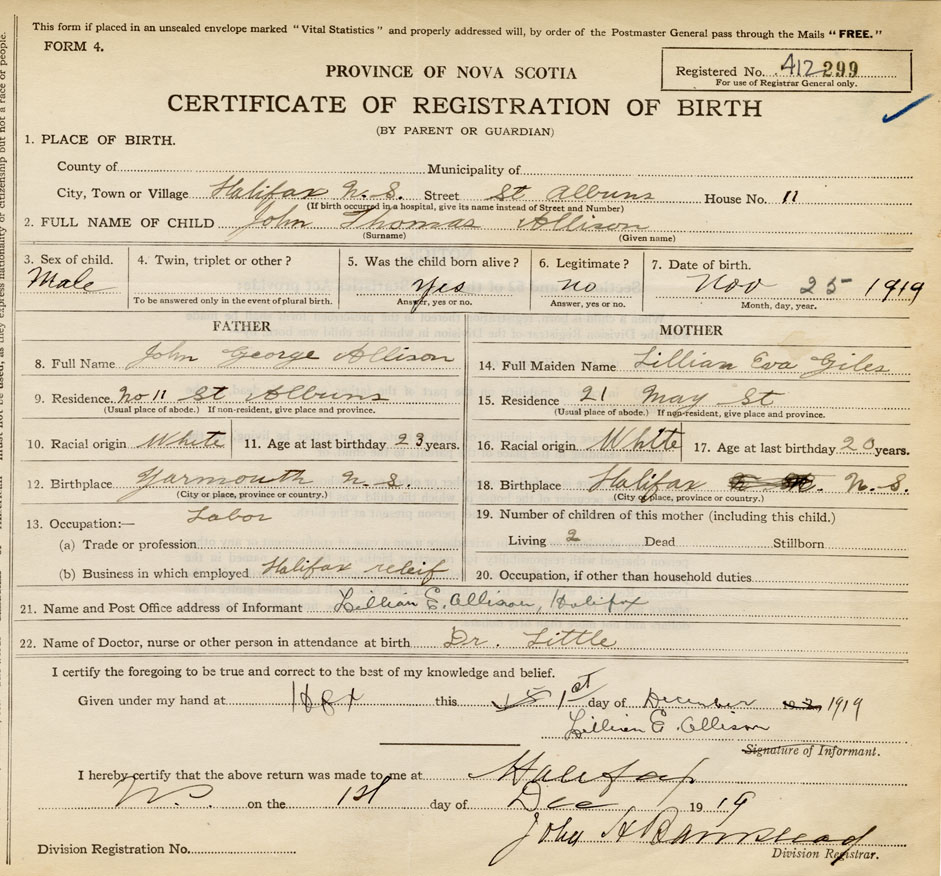 This form if placed in an unsealed envelope marked "Vital Statistics" and properly addressed will, by order of the Postmaster General pass through the Mails "FREE."
FORM 4.
Registered No. 412299
For use of Registrar General only.
PROVINCE OF NOVA SCOTIA
CERTIFICATE OF REGISTRATION OF BIRTH
(BY PARENT OR GUARDIAN)
1. PLACE OF BIRTH.
County of Municipality of
City, Town or Village Halifax N.S. Street St Albuns House No. 11
(If birth occurred in a hospital, give its name instead of Street and Number)
2. FULL NAME OF CHILD John Thomas Allison
(Surname) (Given name)
3. Sex of child. Male
4. Twin, triplet or other?
To be answered only in the event of plural birth.
5. Was the child born alive? Yes
Answer, yes or no.
6. Legitimate? no
Answer, yes or no.
7. Date of birth. Nov 25 1919
Month, day, year.
FATHER
8. Full Name John George Allison
9. Residence. No 11 St Albuns
(Usual place of abode.) If non-resident, give place and province.
10. Racial origin White 11. Age at last birthday 23 years.
12. Birthplace Yarmouth N.S.
(City or place, province or country.)
13. Occupation:— Labor
(a) Trade or profession
(b) Business in which employed Halifax releif
MOTHER
14. Full Maiden Name Lillian Eva Giles
15. Residence 21 May St
(Usual place of abode.) If non-resident, give place and province.
16. Racial origin White 17. Age at last birthday 20 years.
18. Birthplace Halifax N.S.
(City or place, province or country.)
19. Number of children of this mother (including this child.)
Living 2 Dead Stillborn
20. Occupation, if other than household duties
21. Name and Post Office address of Informant Lillian E. Allison, Halifax
22. Name of Doctor, nurse or other person in attendance at birth Dr. Little
I certify the foregoing to be true and correct to the best of my knowledge and belief.
Given under my hand at Hfx this 1st day of December 1919
Lillian E. Allison
Signature of Informant.
I hereby certify that the above return was made to me at Halifax
N.S. on the 1st day of Dec 1919
John H Barnstead
Division Registration No. Division Registrar.